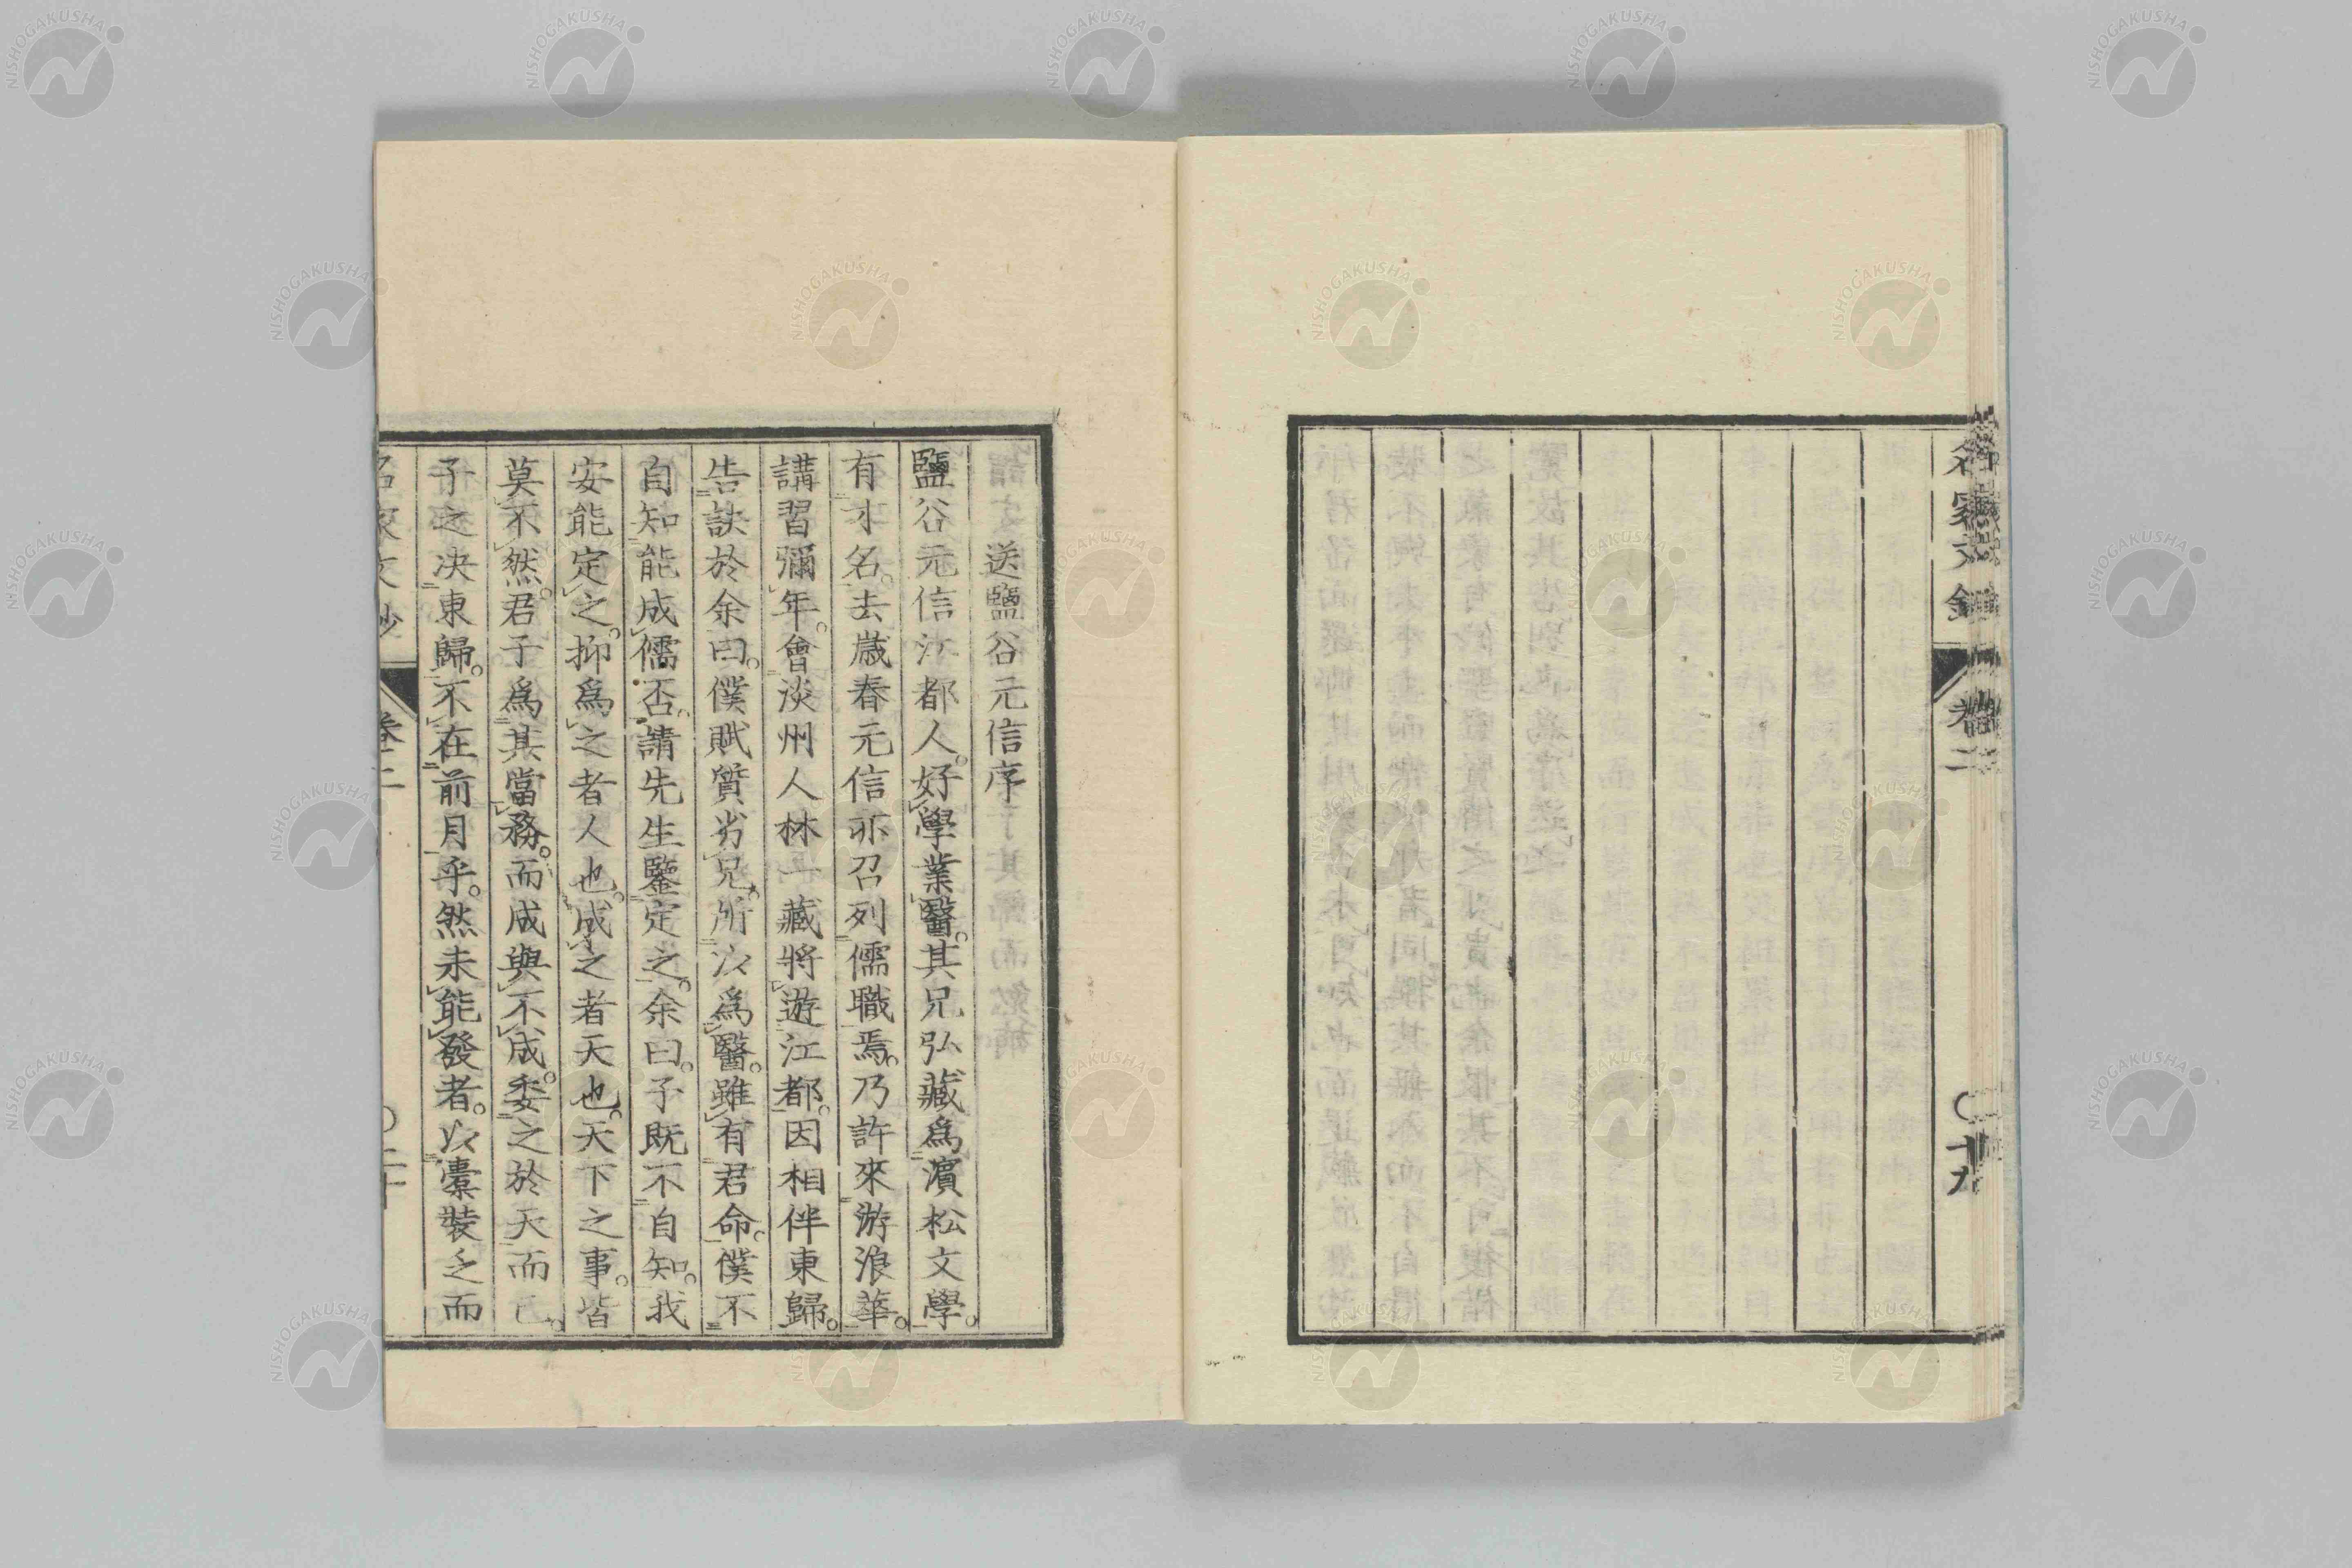 名家文鈔
卷二
十九
送鹽谷元信序
鹽谷元信江都人。好學業醫。其兄弘藏爲濵松文學。
有才名。去歲春元信亦召列儒職焉。乃許來游浪華。
講習彌年。會淡州人林一藏將遊江都。因相伴東歸。
告訣於余曰。僕賦質劣兄。所以爲醫。雖有君命。僕不
自知能成儒否。請先生鑒定之。余曰。子既不自知。我
安能定之。抑爲之者人也。成之者天也。天下之事。皆
莫不然。君子爲其當務。而成與不成。委之於天而已。
子之决東歸。不在前月乎。然未能發者。以橐裝乏而
名家文鈔
卷二
二十
NISHOGAKUSHA